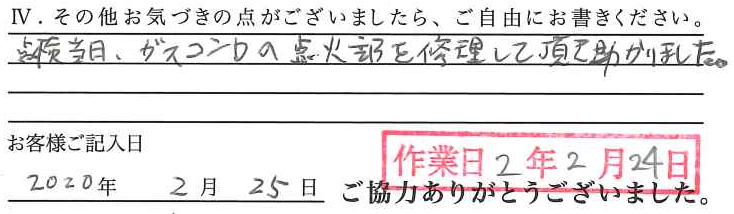 Ⅳ．その他お気づきの点がございましたら、ご自由にお書きください。
点検当日、ガスコンロの点火部を修理して頂き助かりました。
お客様ご記入日
作業日2年2月24日
2020年 2月 25日 ご協力ありがとうございました。